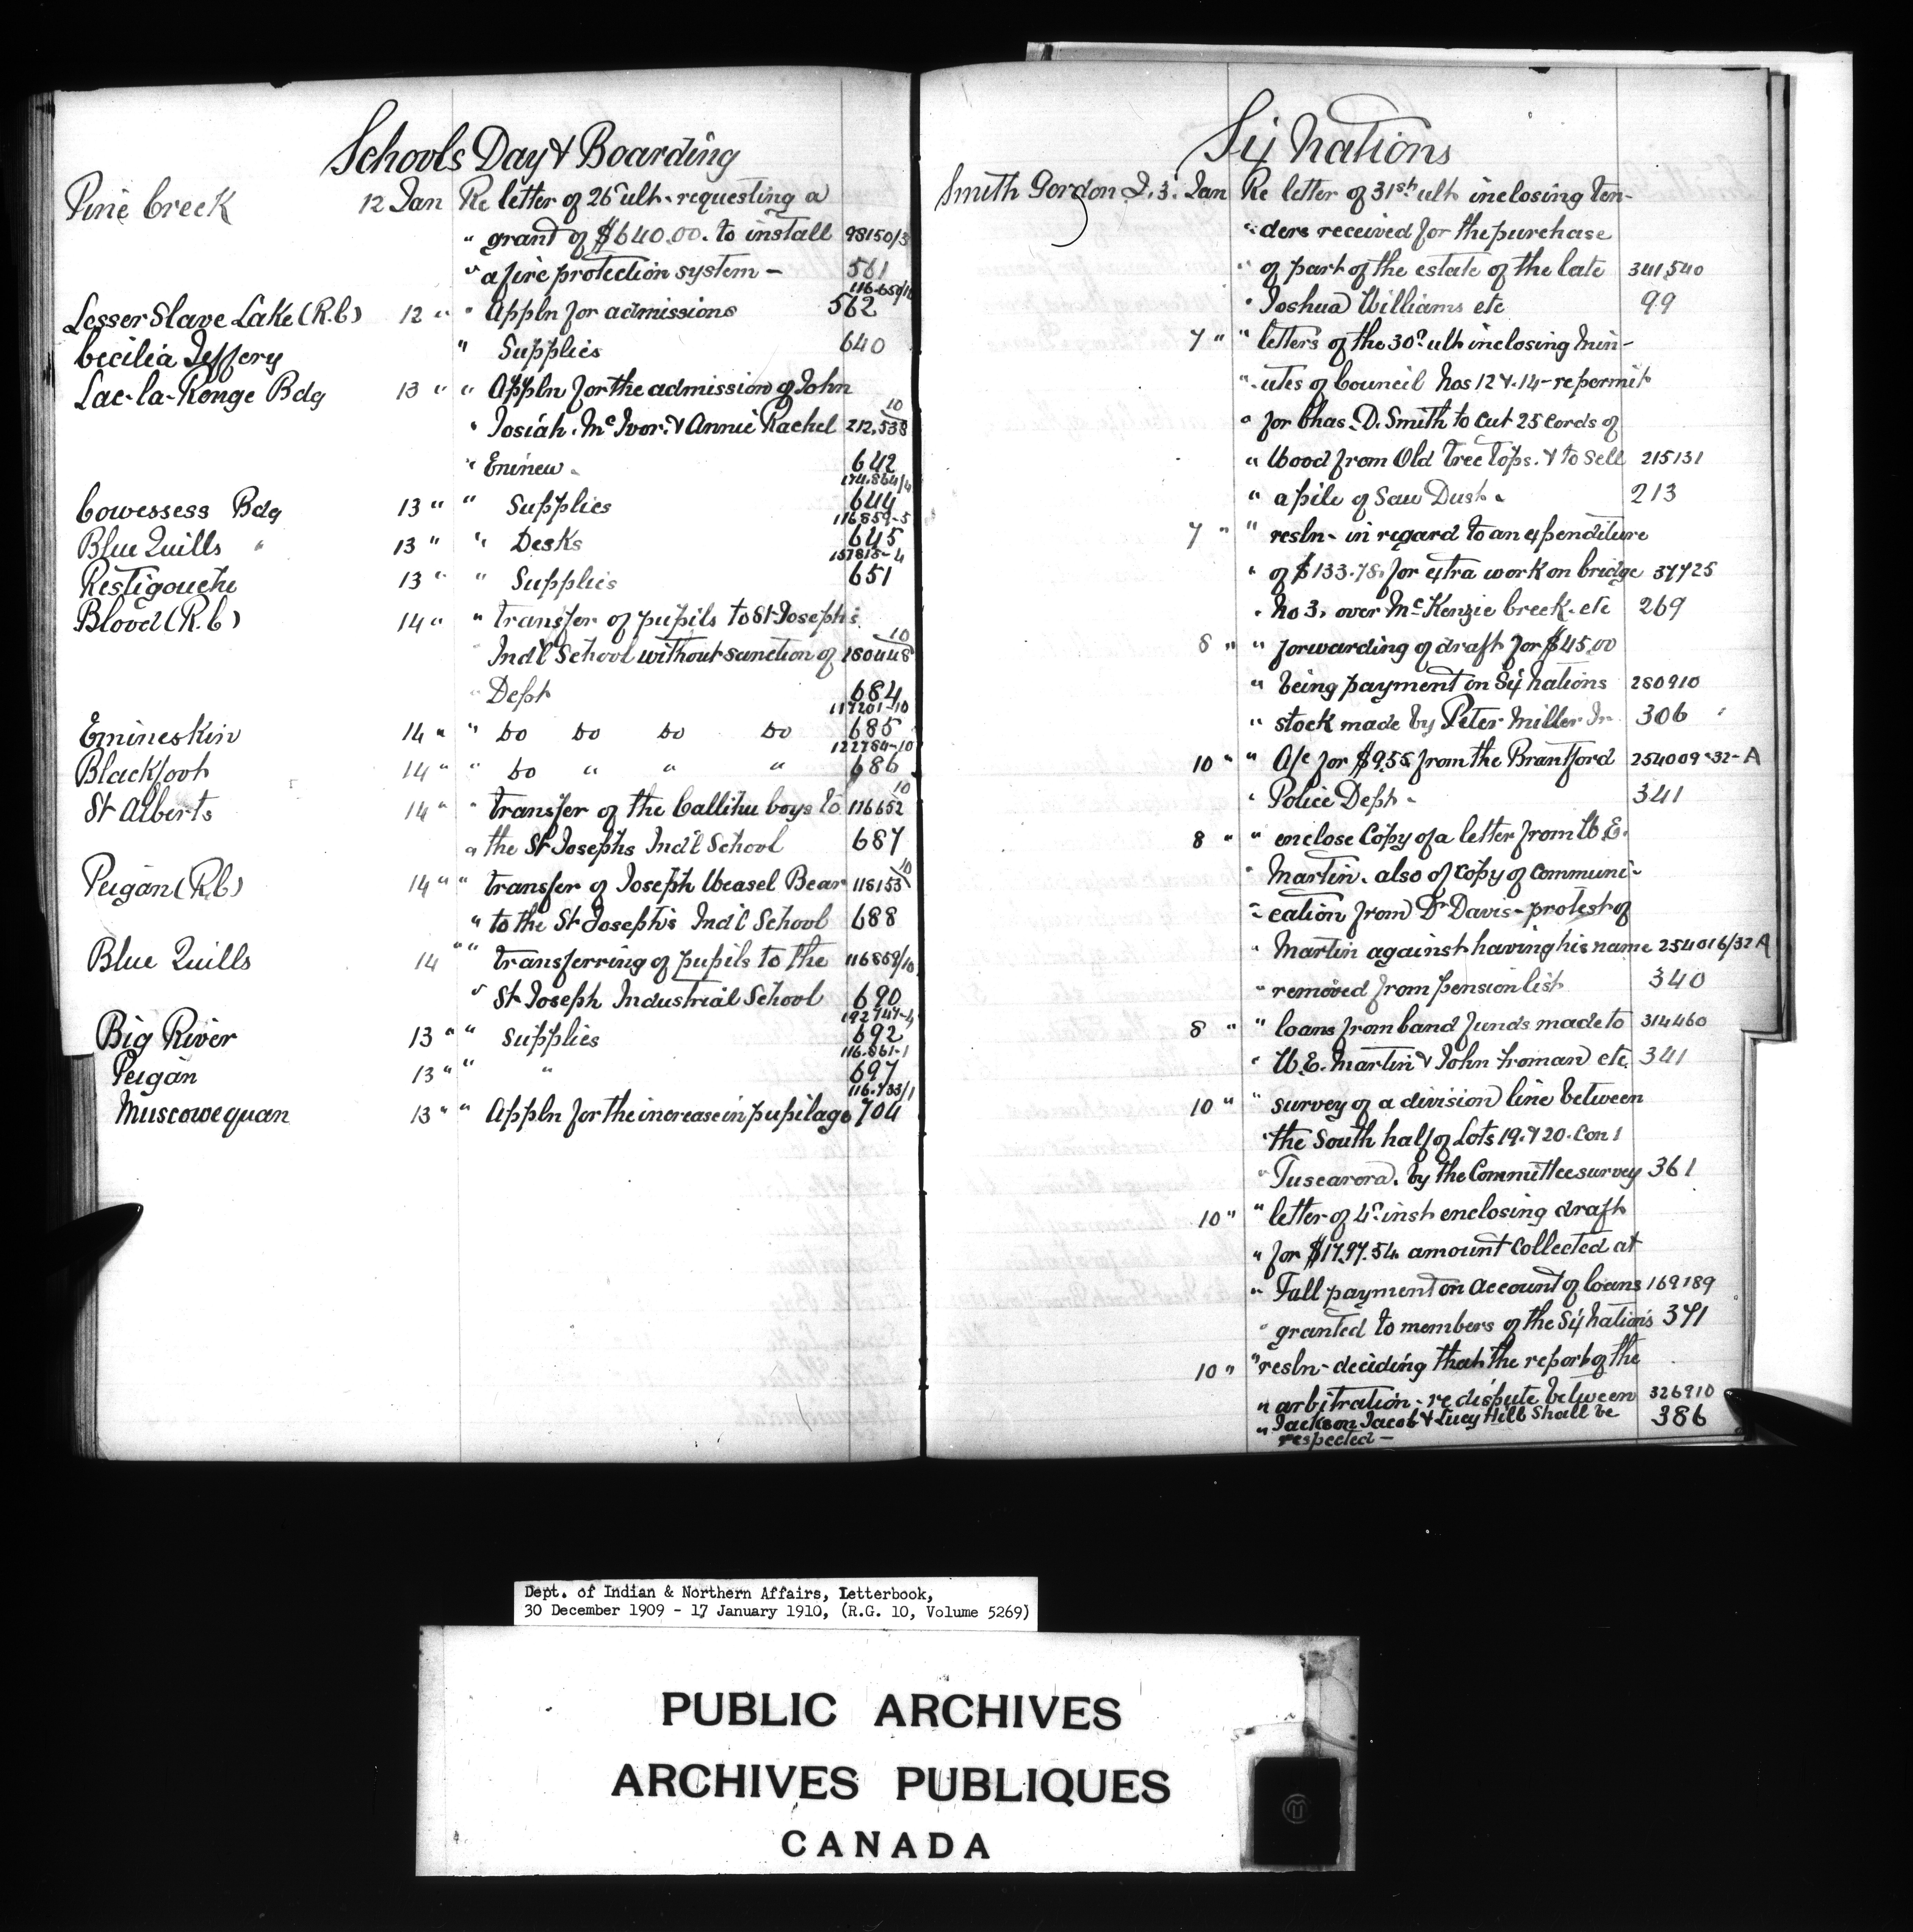 Schools Day & Boarding
Pine Creek 12 Jan Re letter of 26" ult. requesting a
" grant of $640.00. to install 98150/3
" a fire protection system — 561
116.650/10
Lesser Slave Lake (R.C) 12 " " Appln for admissions 562
Cecilia Jeffery " Supplies 640
Lac-la-Ronge Bdg 13 " " Appln for the admission of John
10
" Josiah. McIvor. & Annie Rachel 212,538
" Eninew. 642
174.864/4
Cowessess Bdg 13 " " Supplies 644
116859-5
Blue Quills " 13 " " Desks 645
157815-4
Restigouche 13 " " Supplies 651
Blood (R.C) 14 " " transfer of pupils to St Josephs
10
" Ind'l School without sanction of 180448
" Dept 684
117201-10
Emineskin 14 " " Do Do Do Do 685
122784-10
Blackfoot 14 " " Do " " " 686
10
St Alberts 14 " " transfer of the Callihu boys to 116652
" the St Josephs Ind'l School 687
10
Peigan (R.C) 14 " " transfer of Joseph Weasel Bear 118153
" to the St Joseph's Ind'l School 688
Blue Quills 14 " " transferring of pupils to the 116859/10
" St Joseph Industrial School 690
192747-4
Big River 13 " " Supplies 692
116.861-1
Peigan 13 " " " 697
116.733/1
Muscowequan 13 " " Appln for the increase in pupilage 704
Six Nations
Smith Gordon J. 3. Jan Re letter of 31st ult inclosing ten-
" ders received for the purchase
" of part of the estate of the late 341,540
" Joshua Williams etc 99
7 " " letters of the 30" ult inclosing Min-
" utes of Council Nos 12 & 14 - re permit
" for Chas. D. Smith to cut 25 Cords of
" Wood from Old Tree Tops. & to Sell 215131
" a pile of Saw Dust. 213
7 " " resln - in regard to an expenditure
" of $133.78. for extra work on bridge 37725
" No 3. over McKenzie Creek. etc 269
8 " " forwarding of draft for $45.00
" being payment on Six Nations 280910
" stock made by Peter Miller Jr 306
10 " " A/c for $9.55 from the Brantford 254009-32-A
" Police Dept - 341
8 " " enclose Copy of a letter from W.E.
" Martin. also of copy of Communi-
" cation from Dr Davis - protest of
" Martin against having his name 254016/32 A
" removed from pension list 340
8 " " loans from band funds made to 314460
" W.E. Martin & John Froman etc. 341
10 " " survey of a division line between
" the South half of Lots 19. & 20. Con 1
" Tuscarora. by the Committee survey 361
10 " " letter of 4" inst enclosing draft
" for $1797.54 amount Collected at
" Fall payment on account of loans 169189
" granted to members of the Six Nations 371
10 " " resln - deciding that the report of the
" arbitration - re dispute between 326910
" Jackson Jacob & Lucy Hill Shall be 386
respected —
Dept. of Indian & Northern Affairs, Letterbook,
30 December 1909 - 17 January 1910, (R.G. 10, Volume 5269)
PUBLIC ARCHIVES
ARCHIVES PUBLIQUES
CANADA